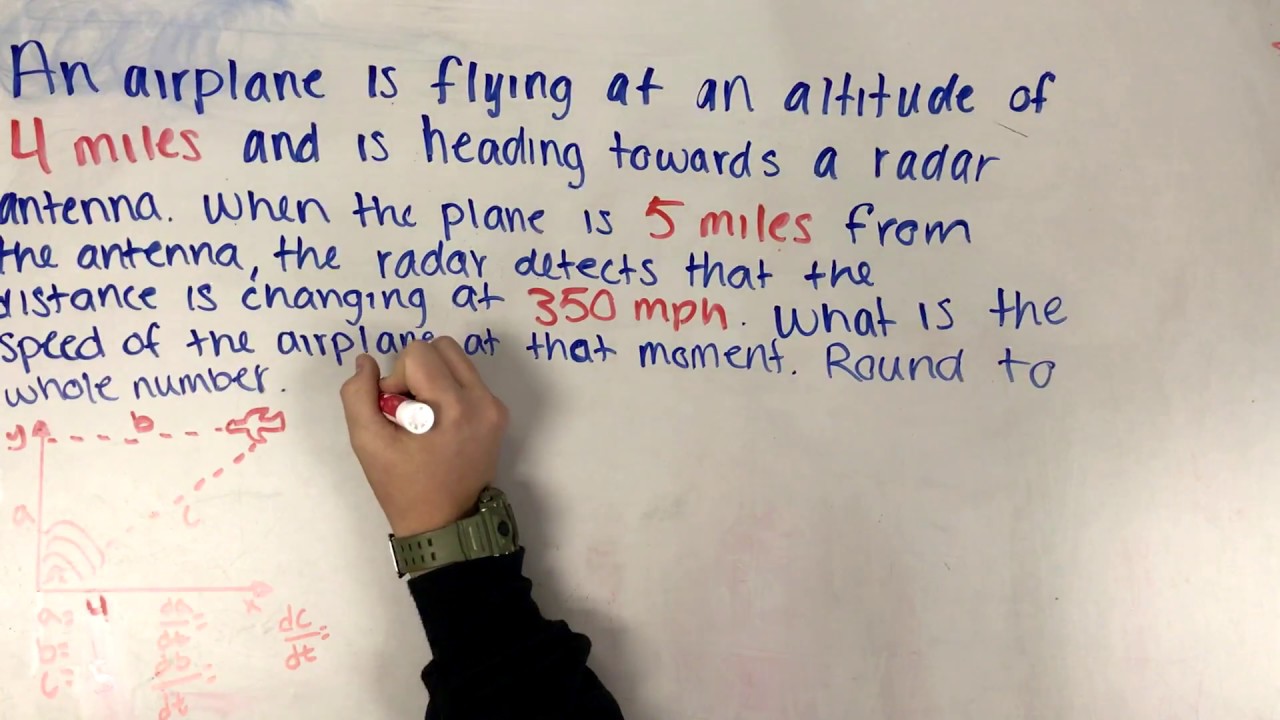 An airplane is flying at an altitude of
4 miles and is heading towards a radar
antenna. When the plane is 5 miles from
the antenna, the radar detects that the
distance is changing at 350 mph. What is the
speed of the airplane at that moment. Round to
whole number.
y b
c
a
x
a= 4 da/dt=
b= db/dt=
c=
dc/dt=